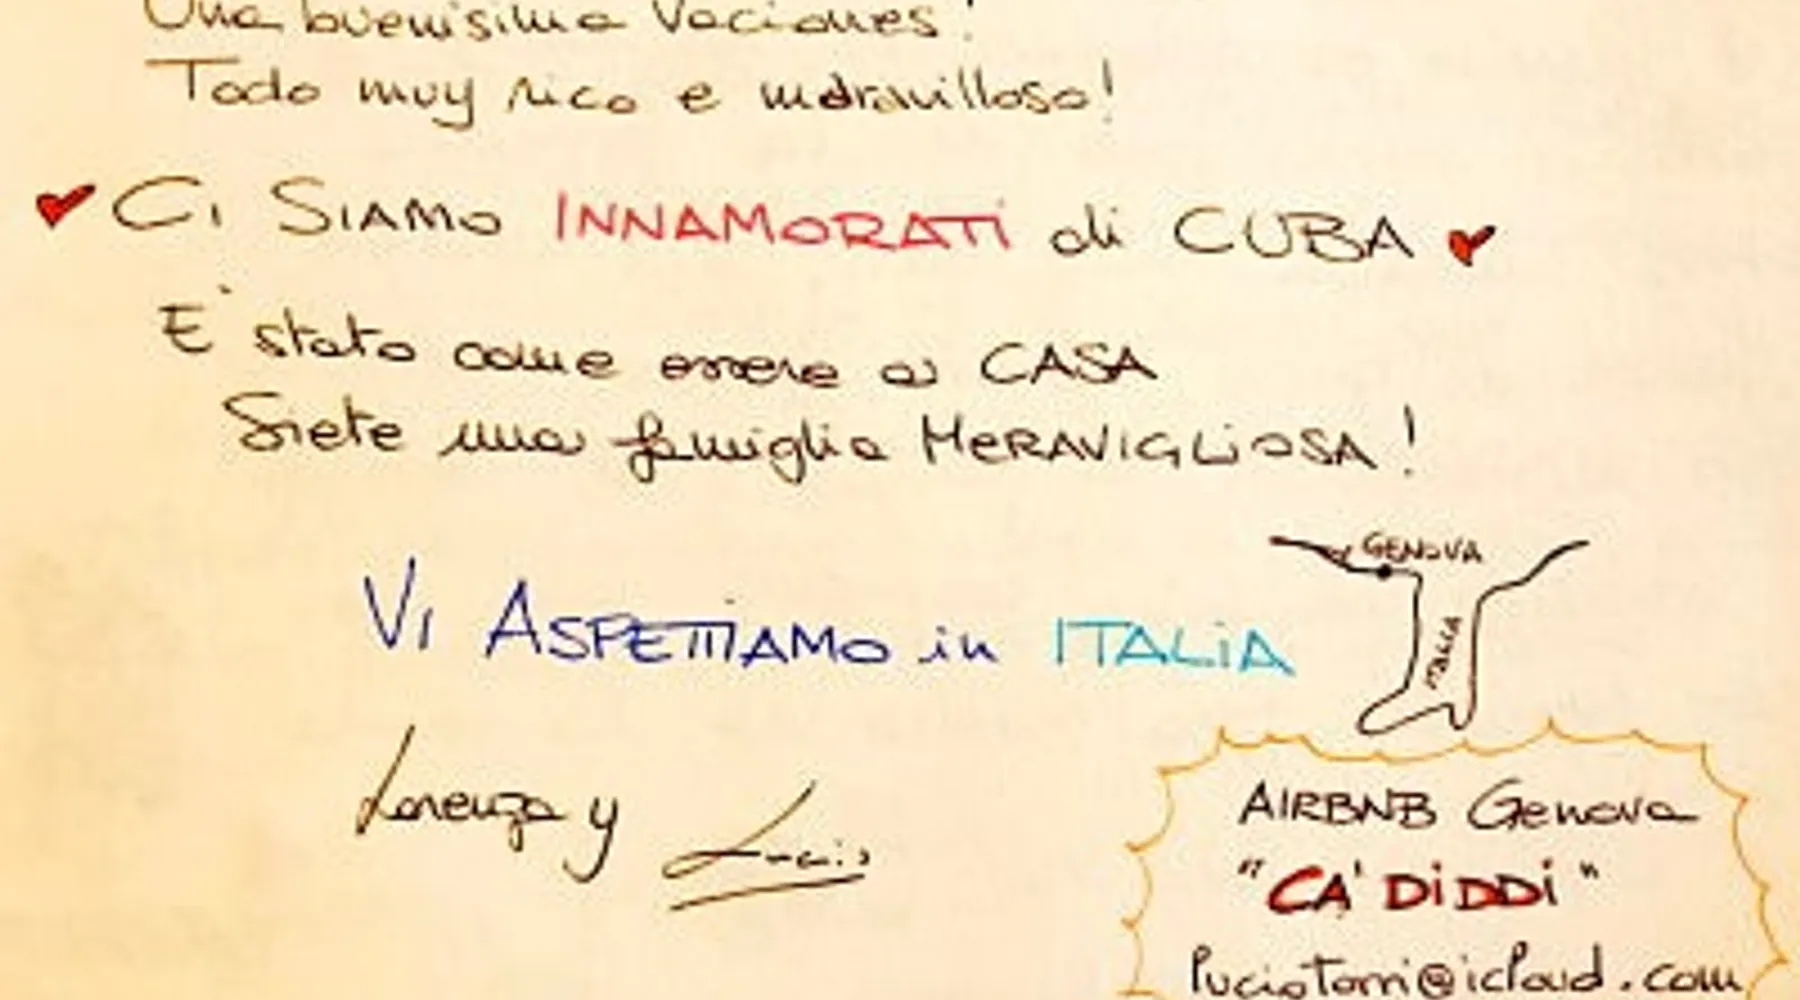 Una buenisima Vaciones!
Todo muy rico e maravilloso!
Ci SIAMO INNAMORATI di CUBA
E' stato come essere a CASA
Siete una famiglia MERAVIGLIOSA!
GENOVA
VI ASPETTIAMO in ITALIA
ITALIA
Lorenza y
Lucio
AIRBNB Genova
"CA' DiDDi"
luciotorri@icloud.com